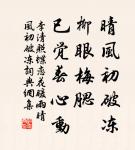 晴風初破凍
柳眼梅腮
已覺春心動
李清照蝶戀花暖雨晴
風初破凍詞典網集